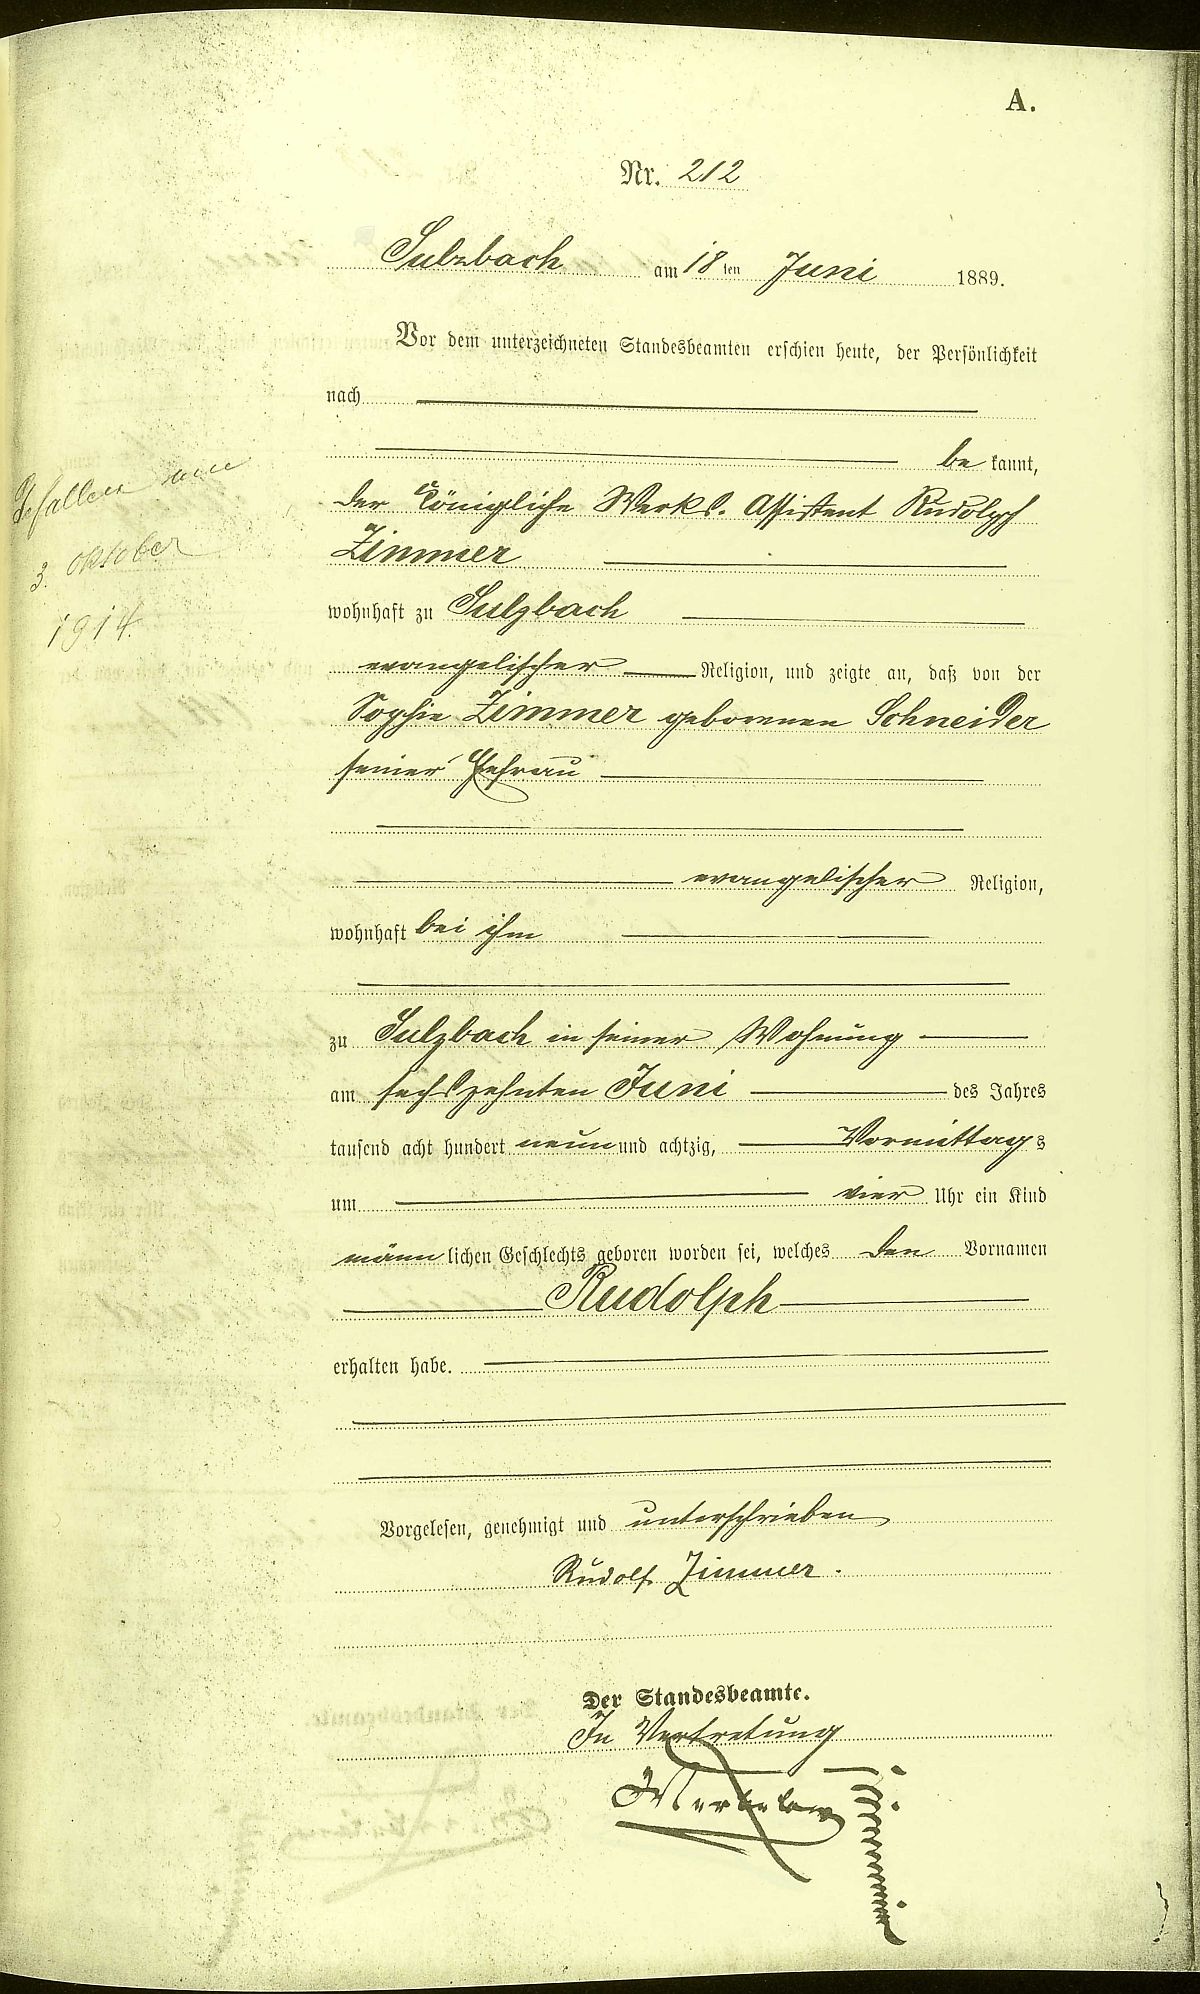 A.
Nr. 212
Sulzbach am 18ten Juni 1889.
Vor dem unterzeichneten Standesbeamten erschien heute, der Persönlichkeit
nach
be kannt,
der Königliche Werks-Assistent Rudolph
Zimmer
wohnhaft zu Sulzbach
evangelischer Religion, und zeigte an, daß von der
Sophie Zimmer geborenen Schneider
seiner Ehefrau
evangelischer Religion,
wohnhaft bei ihm
zu Sulzbach in seiner Wohnung
am sechszehnten Juni des Jahres
tausend acht hundert neun und achtzig, Vormittags
um vier Uhr ein Kind
männlichen Geschlechts geboren worden sei, welches den Vornamen
Rudolph
erhalten habe.
Vorgelesen, genehmigt und unterschrieben
Rudolf Zimmer.
Der Standesbeamte.
In Vertretung
Gefallen am
3. Oktober
1914.